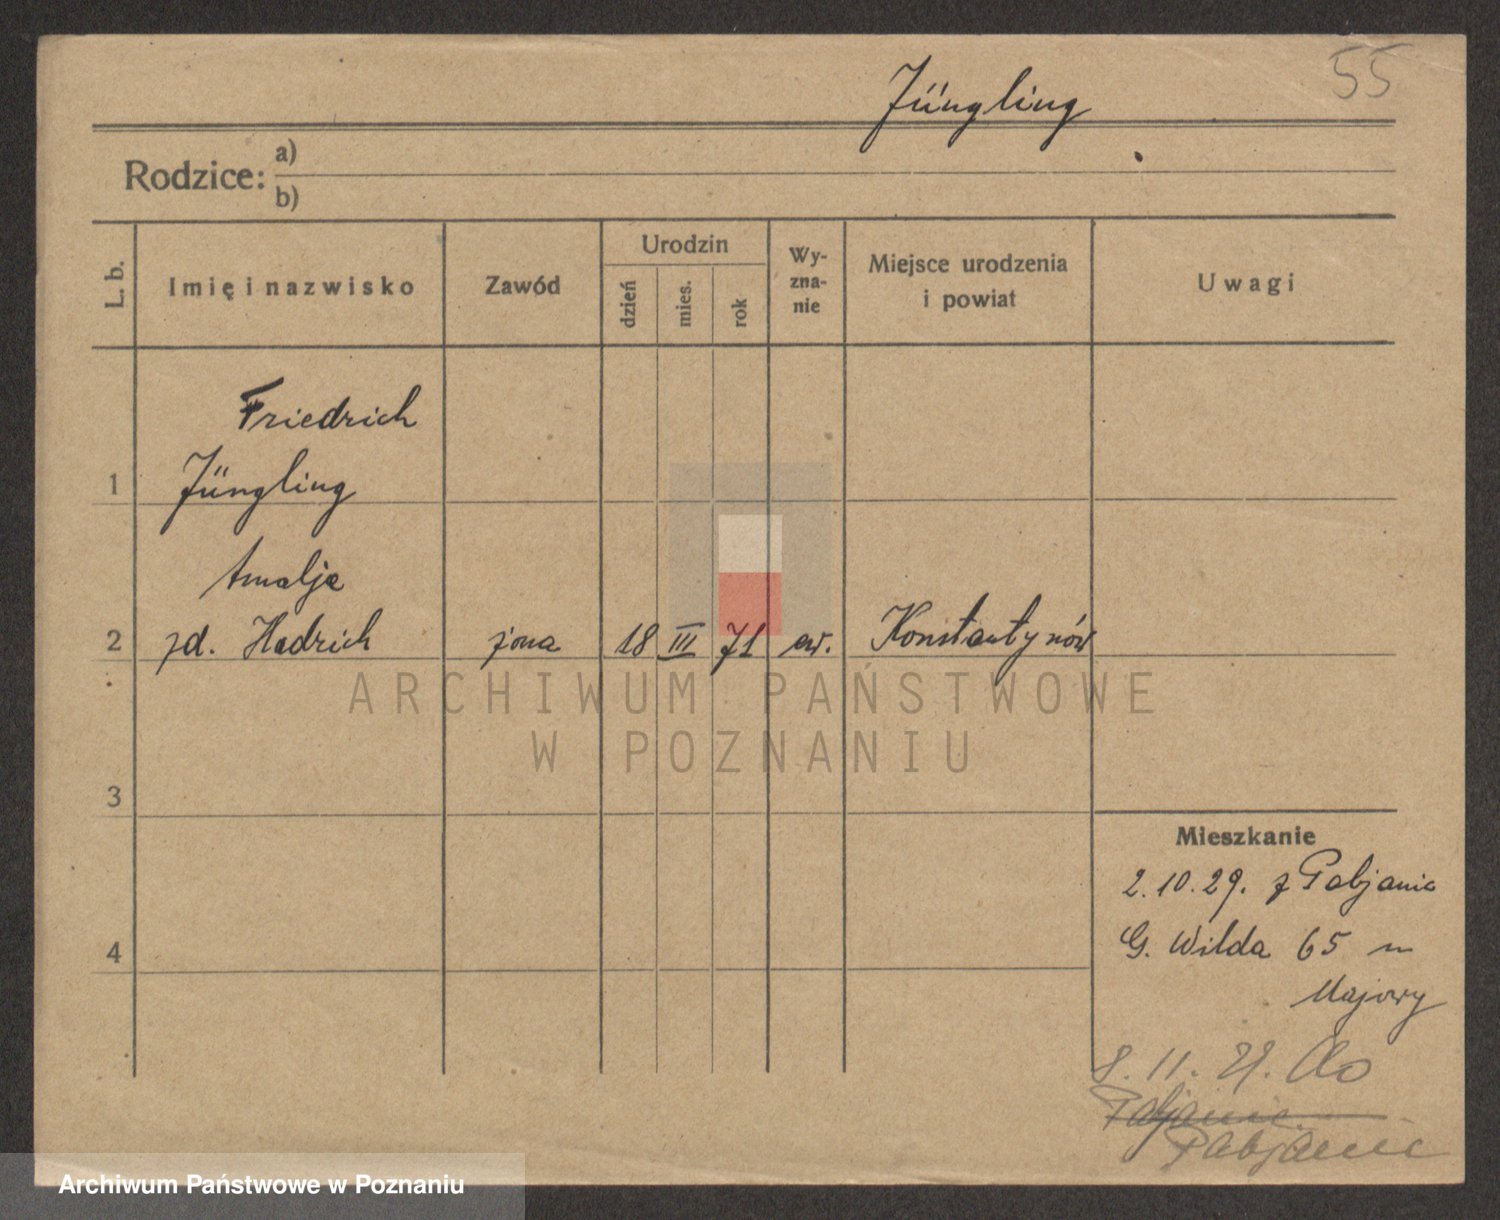 55
Jüngling
Rodzice: a)
b)
L. b.
Imię i nazwisko
Zawód
Urodzin
dzień
mies.
rok
Wy-
zna-
nie
Miejsce urodzenia
i powiat
Uwagi
Friedrich
1 Jüngling
Amalja
2 zd. Hadrich żona 18 III 71 ew. Konstantynów
ARCHIWUM PAŃSTWOWE
W POZNANIU
3
Mieszkanie
2.10.29. z Pabjanic
4 G. Wilda 65 m
Majowy
8.11.29. do
Pabjanic
Pabjanic
Archiwum Państwowe w Poznaniu